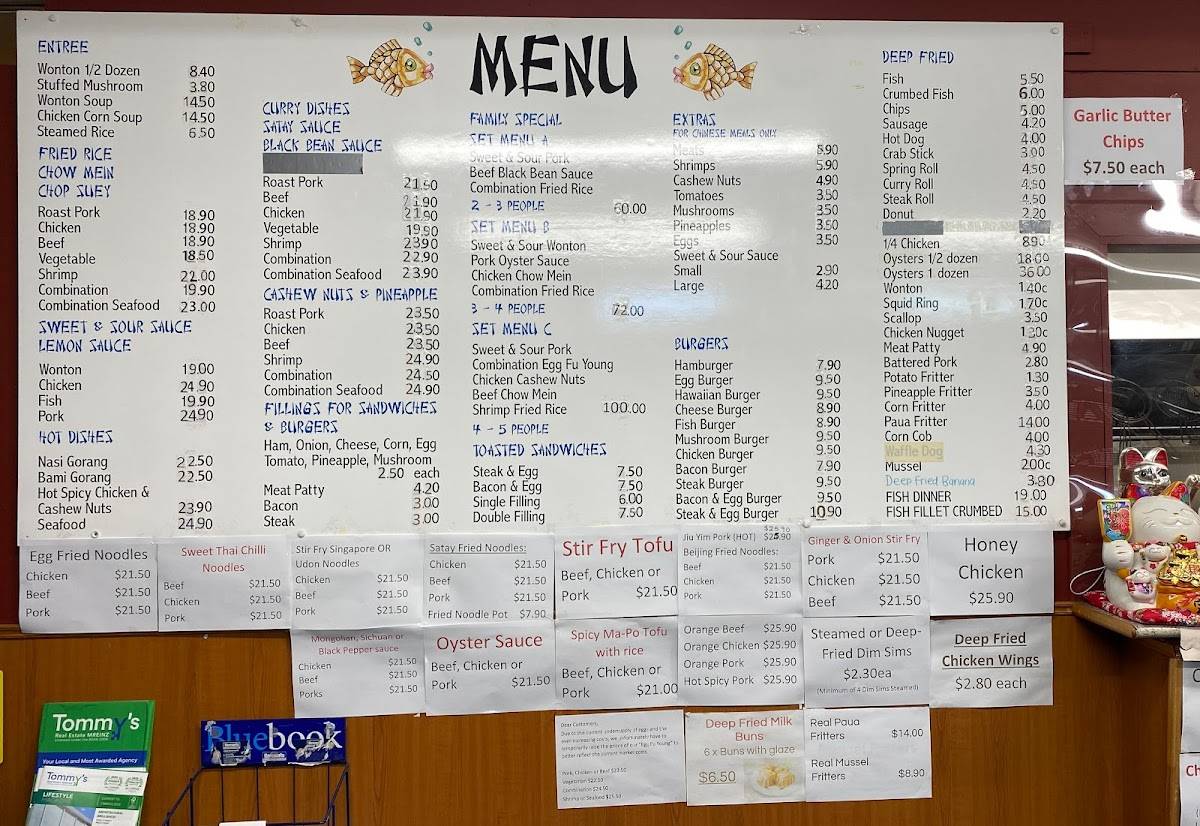 MENU
ENTREE
Wonton 1/2 Dozen 8.40
Stuffed Mushroom 3.80
Wonton Soup 14.50
Chicken Corn Soup 14.50
Steamed Rice 6.50
FRIED RICE
CHOW MEIN
CHOP SUEY
Roast Pork 18.90
Chicken 18.90
Beef 18.90
Vegetable 18.50
Shrimp 22.00
Combination 19.90
Combination Seafood 23.00
SWEET & SOUR SAUCE
LEMON SAUCE
Wonton 19.00
Chicken 24.90
Fish 19.90
Pork 24.90
HOT DISHES
Nasi Gorang 22.50
Bami Gorang 22.50
Hot Spicy Chicken &
Cashew Nuts 23.90
Seafood 24.90
CURRY DISHES
SATAY SAUCE
BLACK BEAN SAUCE
Roast Pork 21.90
Beef 21.90
Chicken 21.90
Vegetable 19.90
Shrimp 23.90
Combination 22.90
Combination Seafood 23.90
CASHEW NUTS & PINEAPPLE
Roast Pork 23.50
Chicken 23.50
Beef 23.50
Shrimp 24.90
Combination 24.50
Combination Seafood 24.90
FILLINGS FOR SANDWICHES
& BURGERS
Ham, Onion, Cheese, Corn, Egg
Tomato, Pineapple, Mushroom
2.50 each
Meat Patty 4.20
Bacon 3.00
Steak 3.00
FAMILY SPECIAL
SET MENU A
Sweet & Sour Pork
Beef Black Bean Sauce
Combination Fried Rice
2 - 3 PEOPLE 60.00
SET MENU B
Sweet & Sour Wonton
Pork Oyster Sauce
Chicken Chow Mein
Combination Fried Rice
3 - 4 PEOPLE 72.00
SET MENU C
Sweet & Sour Pork
Combination Egg Fu Young
Chicken Cashew Nuts
Beef Chow Mein
Shrimp Fried Rice 100.00
4 - 5 PEOPLE
TOASTED SANDWICHES
Steak & Egg 7.50
Bacon & Egg 7.50
Single Filling 6.00
Double Filling 7.50
EXTRAS
FOR CHINESE MEALS ONLY
Meats 5.90
Shrimps 5.90
Cashew Nuts 4.90
Tomatoes 3.50
Mushrooms 3.50
Pineapples 3.50
Eggs 3.50
Sweet & Sour Sauce
Small 2.90
Large 4.20
BURGERS
Hamburger 7.90
Egg Burger 9.50
Hawaiian Burger 9.50
Cheese Burger 8.90
Fish Burger 8.90
Mushroom Burger 9.50
Chicken Burger 9.50
Bacon Burger 7.90
Steak Burger 9.50
Bacon & Egg Burger 9.50
Steak & Egg Burger 10.90
DEEP FRIED
Fish 5.50
Crumbed Fish 6.00
Chips 5.00
Sausage 4.20
Hot Dog 4.00
Crab Stick 3.00
Spring Roll 4.50
Curry Roll 4.50
Steak Roll 4.50
Donut 2.20
1/4 Chicken 8.90
Oysters 1/2 dozen 18.00
Oysters 1 dozen 36.00
Wonton 1.40c
Squid Ring 1.70c
Scallop 3.50
Chicken Nugget 1.30c
Meat Patty 4.90
Battered Pork 2.80
Potato Fritter 1.30
Pineapple Fritter 3.50
Corn Fritter 4.00
Paua Fritter 14.00
Corn Cob 4.00
Waffle Dog 4.30
Mussel 2.00c
Deep Fried Banana 3.80
FISH DINNER 19.00
FISH FILLET CRUMBED 15.00
Garlic Butter
Chips
$7.50 each
Egg Fried Noodles
Chicken $21.50
Beef $21.50
Pork $21.50
Sweet Thai Chilli
Noodles
Beef $21.50
Chicken $21.50
Pork $21.50
Stir Fry Singapore OR
Udon Noodles
Chicken $21.50
Beef $21.50
Pork $21.50
Satay Fried Noodles:
Chicken $21.50
Beef $21.50
Pork $21.50
Fried Noodle Pot $7.90
Stir Fry Tofu
Beef, Chicken or
Pork $21.50
Jiu Yim Pork (HOT) $25.90
Beijing Fried Noodles:
Beef $21.50
Chicken $21.50
Pork $21.50
Ginger & Onion Stir Fry
Pork $21.50
Chicken $21.50
Beef $21.50
Honey
Chicken
$25.90
Mongolian, Sichuan or
Black Pepper sauce
Chicken $21.50
Beef $21.50
Porks $21.50
Oyster Sauce
Beef, Chicken or
Pork $21.50
Spicy Ma-Po Tofu
with rice
Beef, Chicken or
Pork $21.00
Orange Beef $25.90
Orange Chicken $25.90
Orange Pork $25.90
Hot Spicy Pork $25.90
Steamed or Deep-
Fried Dim Sims
$2.30ea
(Minimum of 4 Dim Sims Steamed)
Deep Fried
Chicken Wings
$2.80 each
Dear Customers,
Due to the current undersupply of eggs and the
ever increasing costs, we unfortunately have to
temporarily raise the prices of our "Egg Fu Young" to
better reflect the current market costs.
Pork, Chicken or Beef $23.50
Vegetarian $22.50
Combination $24.50
Shrimp or Seafood $25.50
Deep Fried Milk
Buns
6 x Buns with glaze
$6.50
Real Paua
Fritters $14.00
Real Mussel
Fritters $8.90
Tommy's
Real Estate MREINZ
Your Local and Most Awarded Agency
Tommy's
LIFESTYLE
Bluebook